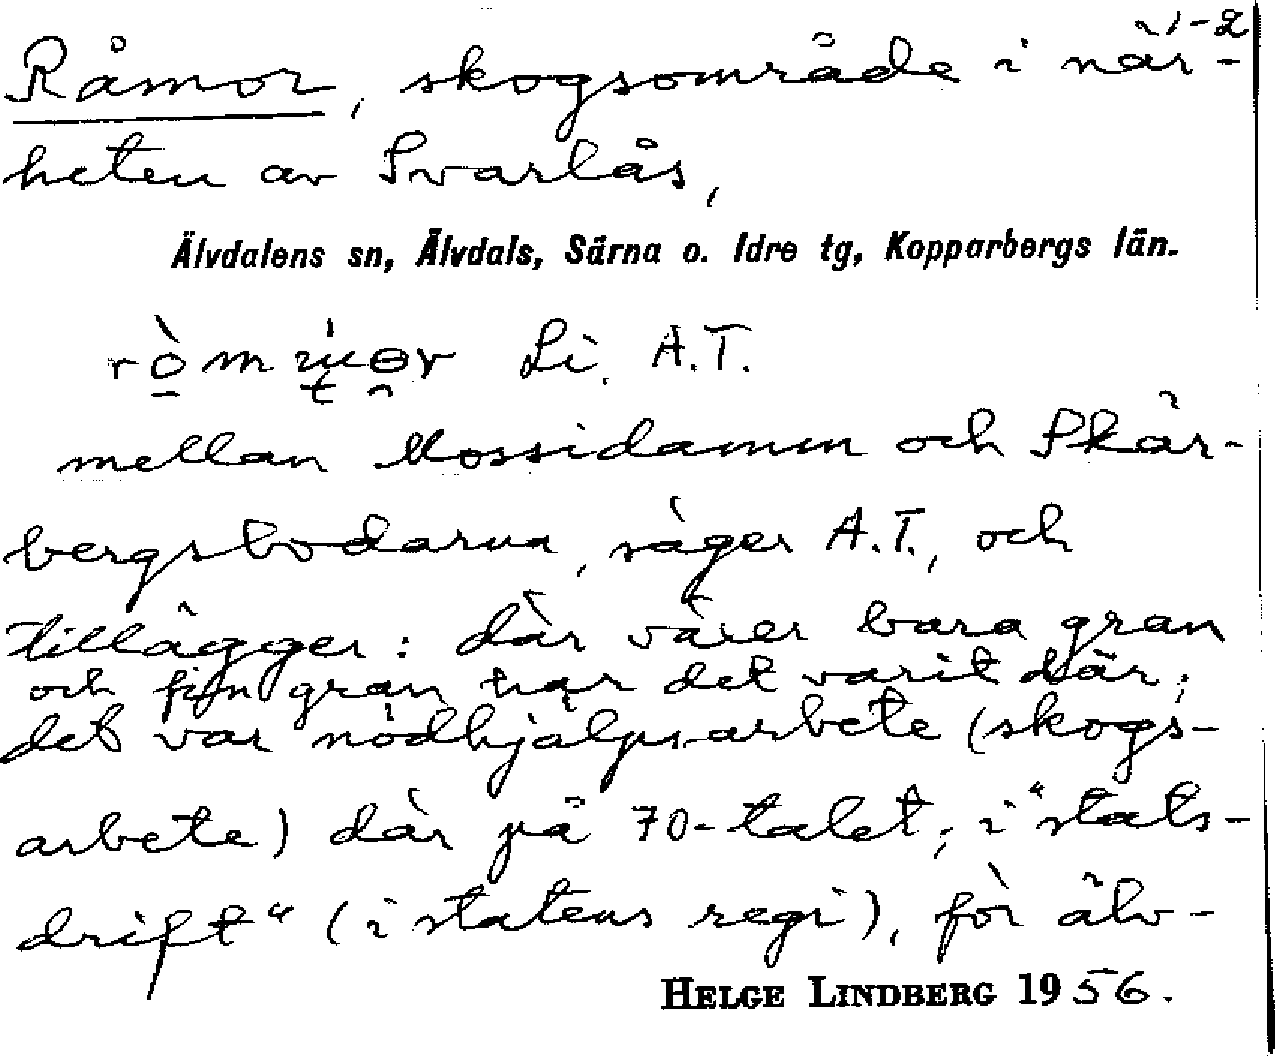 1-2
Råmor, skogsområde i när-
heten av Svartås,
Älvdalens sn, Älvdals, Särna o. Idre tg, Kopparbergs län.
Li. A.T.
mellan Mossidamm och Skär-
bergsbodarna, säger A.T., och
tillägger: där växer bara gran
och fin gran har det varit där;
det var nödhjälpsarbete (skogs-
arbete) där på 70-talet; i "stats-
drift" (i statens regi), för älv-
HELGE LINDBERG 1956.